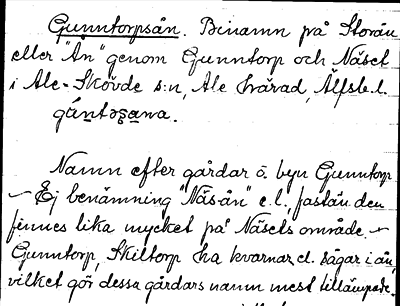 Gunntorpsån. Binamn på Storån
eller "Ån" genom Gunntorp och Näset
i Ale-Skövde s:n, Ale härad, Älfsb. l.
Namn efter gårdar o. byn Gunntorp
– Ej benämning "Näsån" e. l., fastän den
finnes lika mycket på Näsets område. –
Gunntorp, Skiltorp ha kvarnar el. sågar i ån,
vilket gör dessa gårdars namn mest tillämpade.